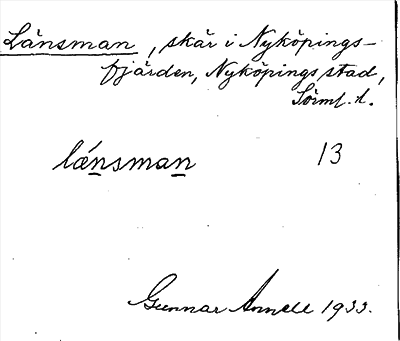 Länsman, skär i Nyköpings-
fjärden, Nyköpings stad,
Sörml. l.
lǽn̲sman̲ 13
Gunnar Annell 1933.